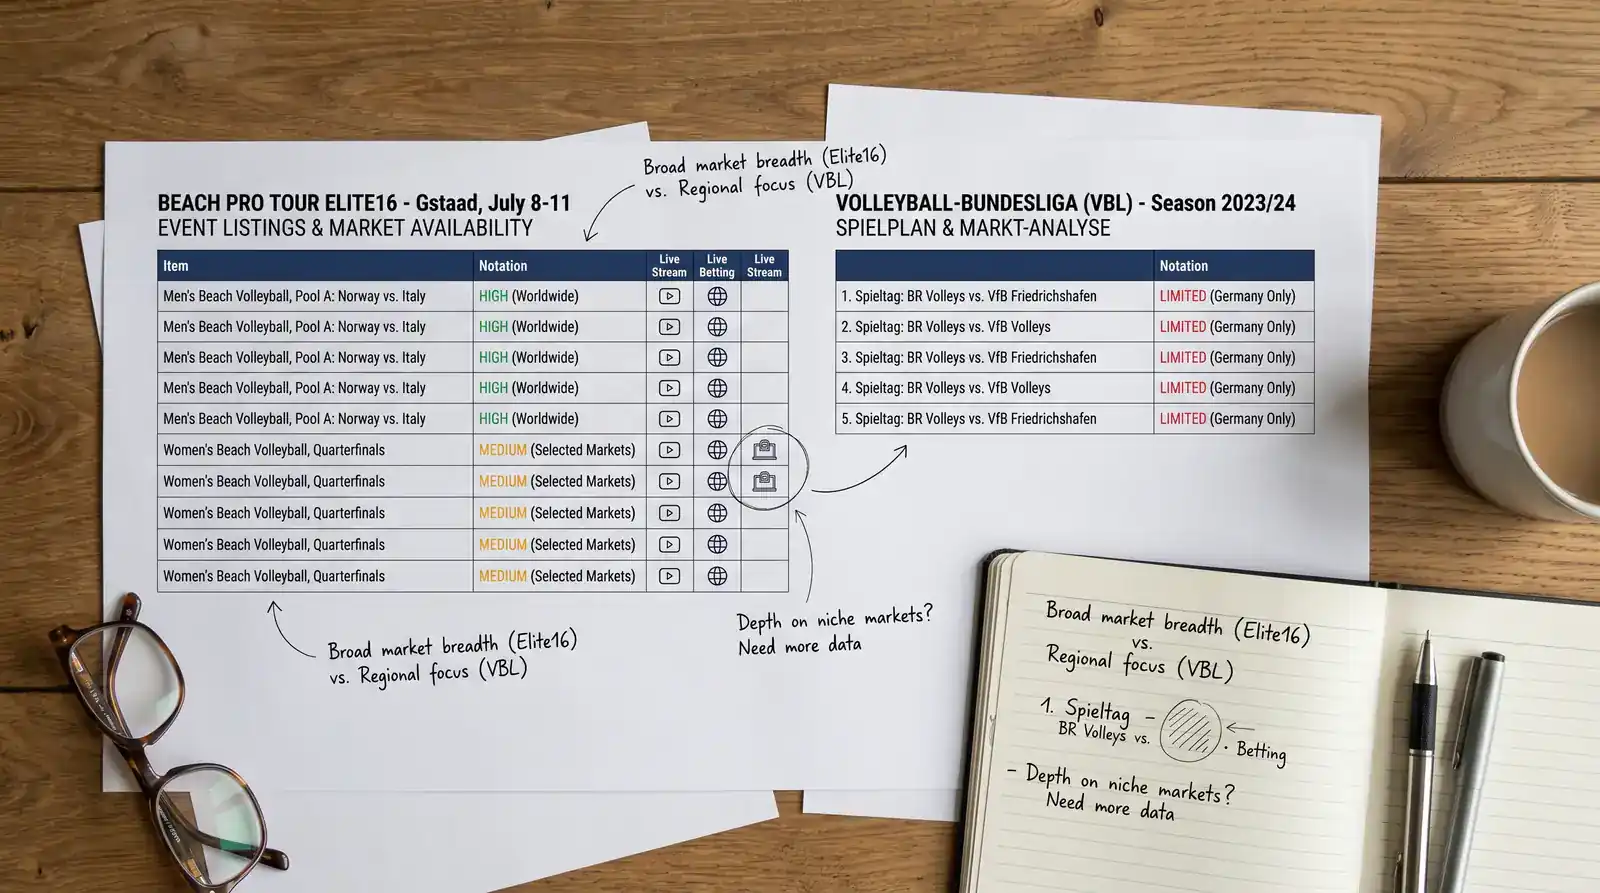 Broad market breadth (Elite16)
vs. Regional focus (VBL)
BEACH PRO TOUR ELITE16 - Gstaad, July 8-11
EVENT LISTINGS & MARKET AVAILABILITY
Item Notation Live Stream Live Betting Live Stream
Men's Beach Volleyball, Pool A: Norway vs. Italy HIGH (Worldwide)
Men's Beach Volleyball, Pool A: Norway vs. Italy HIGH (Worldwide)
Men's Beach Volleyball, Pool A: Norway vs. Italy HIGH (Worldwide)
Men's Beach Volleyball, Pool A: Norway vs. Italy HIGH (Worldwide)
Men's Beach Volleyball, Pool A: Norway vs. Italy HIGH (Worldwide)
Women's Beach Volleyball, Quarterfinals MEDIUM (Selected Markets)
Women's Beach Volleyball, Quarterfinals MEDIUM (Selected Markets)
Women's Beach Volleyball, Quarterfinals MEDIUM (Selected Markets)
Women's Beach Volleyball, Quarterfinals MEDIUM (Selected Markets)
Women's Beach Volleyball, Quarterfinals MEDIUM (Selected Markets)
Broad market breadth (Elite16)
vs. Regional focus (VBL)
Depth on niche markets?
Need more data
VOLLEYBALL-BUNDESLIGA (VBL) - Season 2023/24
SPIELPLAN & MARKT-ANALYSE
Notation
1. Spieltag: BR Volleys vs. VfB Friedrichshafen LIMITED (Germany Only)
2. Spieltag: BR Volleys vs. VfB Volleys LIMITED (Germany Only)
3. Spieltag: BR Volleys vs. VfB Friedrichshafen LIMITED (Germany Only)
4. Spieltag: BR Volleys vs. VfB Volleys LIMITED (Germany Only)
5. Spieltag: BR Volleys vs. VfB Friedrichshafen LIMITED (Germany Only)
Broad market breadth (Elite16)
vs.
Regional focus (VBL)
1. Spieltag –
BR Volleys vs.
· Betting
– Depth on niche markets?
Need more data